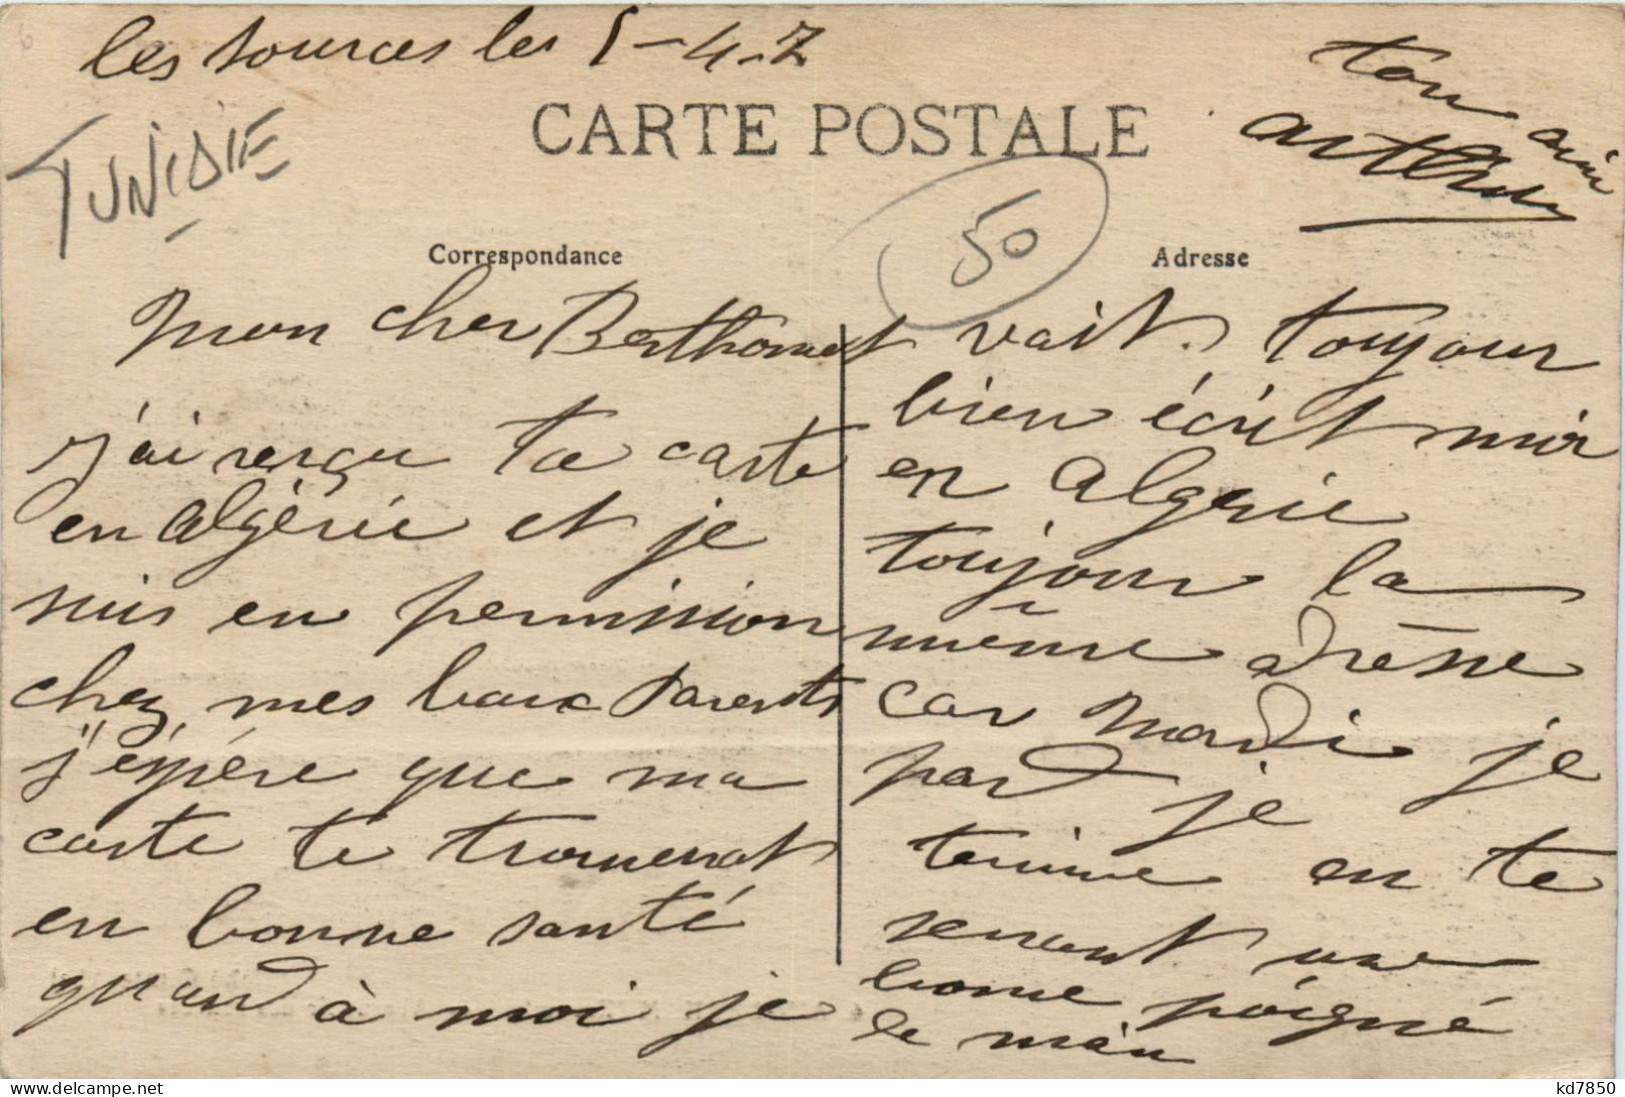 les sources les 5-4-7
TUNISIE
CARTE POSTALE
ton ami
50
Correspondance
Adresse
mon cher Berthomet
j'ai resçu ta carte
en algérie et je
suis en permission
chez mes baux Parents
j'éspère que ma
carte te trouverat
en bonne santé
quand à moi je
vait toujour
bien écrit moi
en algerie
toujour la
même adrèsse
car mardi je
pard je
terimne en te
serrant une
bonne poigné
de main
kd7850